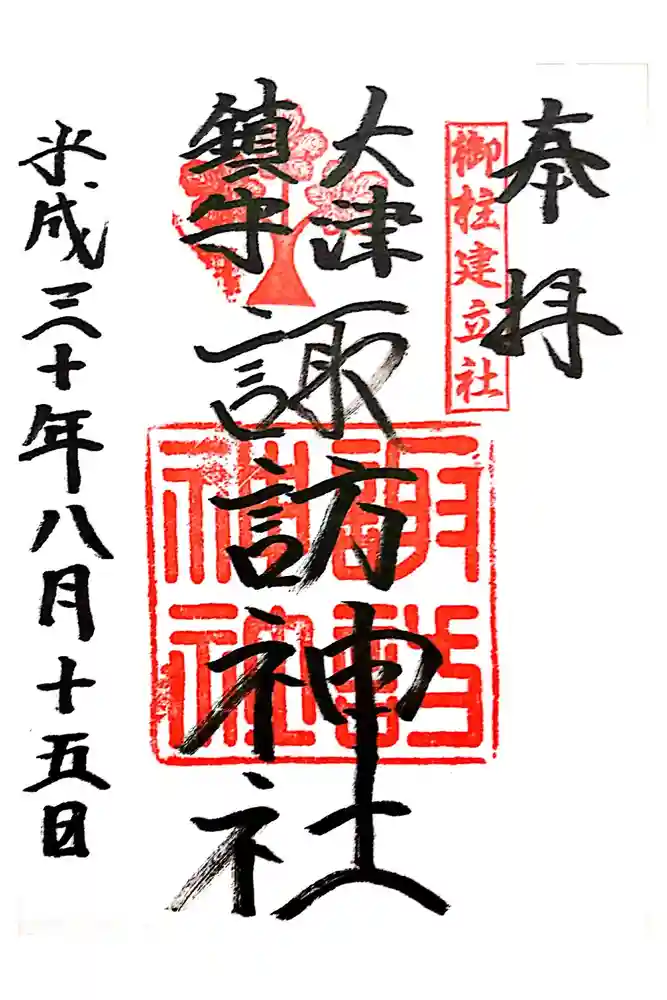 奉拝
御柱建立社
大津
鎮守
諏訪神社
諏訪神社
平成三十年八月十五日